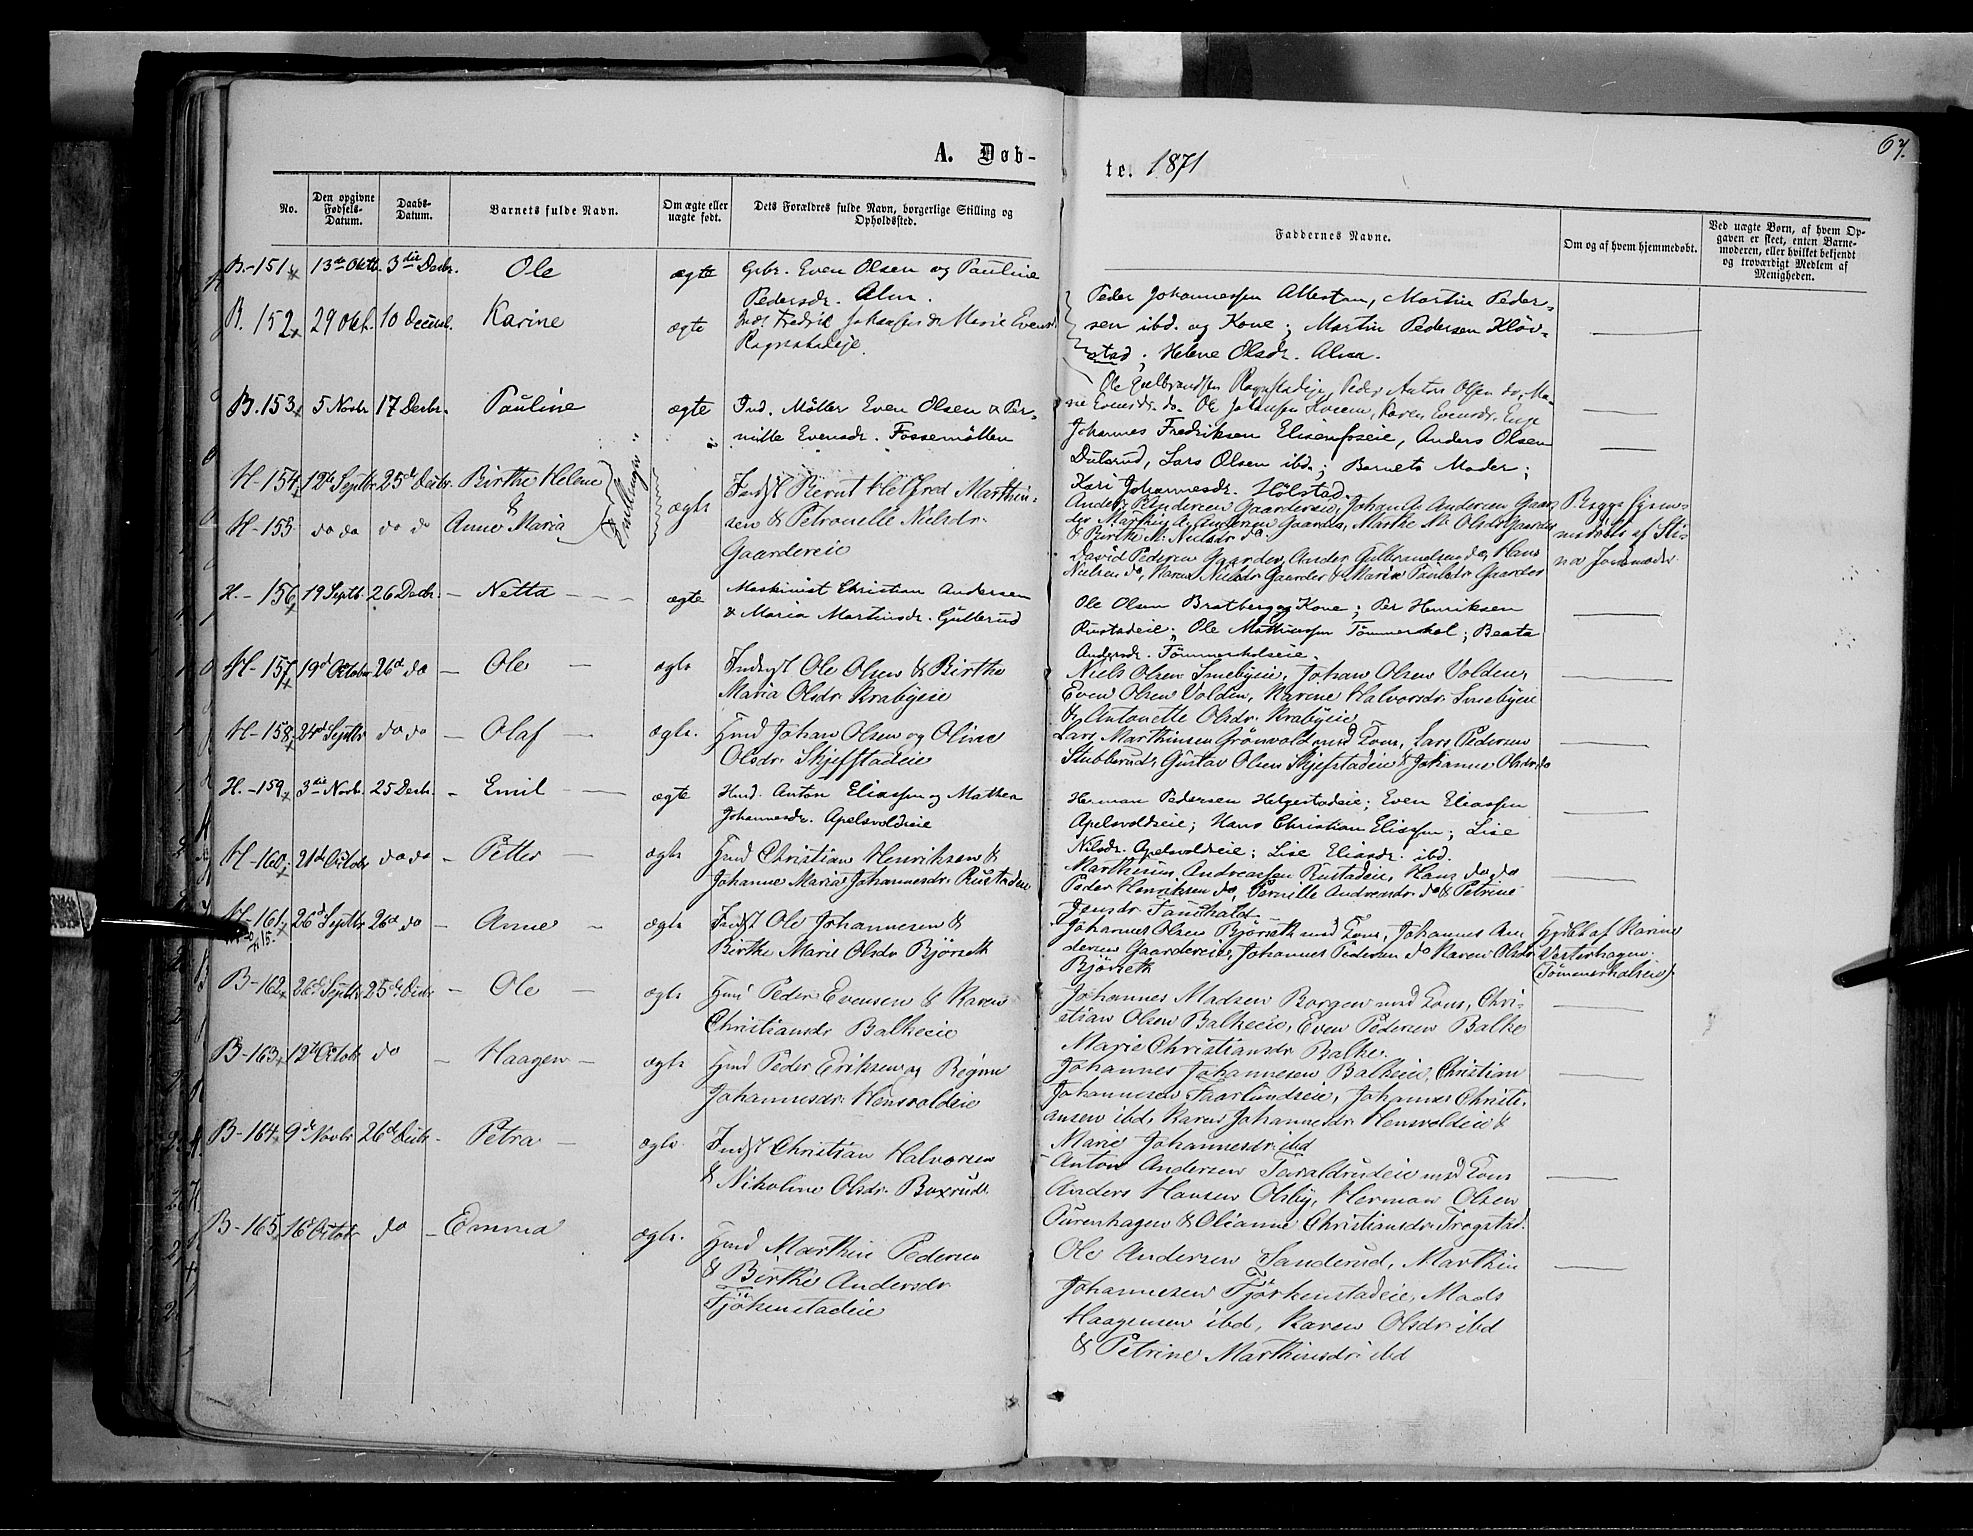 67.
A. Døb-
te. 1871
No.
Den opgivne Fødsels-Datum.
Daabs-Datum.
Barnets fulde Navn.
Om ægte eller uægte født.
Dets Forældres fulde Navn, borgerlige Stilling og Opholdssted.
Faddernes Navne.
Om og af hvem hjemmedøbt.
Ved uægte Børn, af hvem Opgaven er skeet, enten Barnemoderen, eller hvilket bekjendt og troværdigt Medlem af Menigheden.
B.-151 13de Oktb. 3die Decbr. Ole ægte Gbr. Even Olsen og Pauline
Pedersdr. Alm.
Peder Johannessen Allestan, Martin Peder-
sen ibd. og Kone; Martin Pedersen Kløv-
stad; Helene Olsdr. Alm.
B. 152 29 Okt. 10 Decembr. Karine ægte Inds. Fredrik Johansen & Marie Evensd.
Ragnstadeie.
Ole Gulbrandsen Ragnstadeie, Peder Anton Olsen do, Ma-
rie Evensdr. do. Ole Johansen Kveem, Karen Evensdr. Eeje
B. 153 5 Novbr. 17 Decbr. Pauline ægte Ind. Møller Even Olsen & Per-
nille Evensdr. Fossemøllen
Johannes Fredriksen Elisenfoseie, Anders Olsen
Dulsrud, Lars Olsen ibd.; Barnets Moder;
Kari Johannesdr. Hølstad.
H-154 12te Septbr 25de Decbr. Birthe Helene
&
H-155 do do do do Anne Maria
Tvillinger
ægte Indst Bernt Helfred Marthin-
sen & Petronelle Nielsdr.
Gaardereie
Anders Pedersen Gaardereie, Johan A. Andersen Gaar-
der, Marthin A. Andersen Gaarder, Marthe M. Olsdr Gaarder
& Birthe M. Nielsdr do.
David Pedersen Gaarder, Anders Gulbrandsen do, Hans
Nielsen do, Karen Nielsdr Gaarder & Maria Paulsdr Gaarder
Begge hjem-
medøbt af Sti-
na Jordmoder.
H.- 156 19 Septb. 26 Decbr. Netta ægte Maskinist Christian Andersen
& Maria Martinsdr. Gullerud
Ole Olsen Bratberg og Kone; Per Henriksen
Rustadeie; Ole Mathiassen Tømmerhol; Beata
Andersdr. Tømmerholseie.
H-157 19d October 26d do Ole ægte Indst Ole Olsen & Birthe
Maria Olsdr. Krabyeie
Niels Olsen Smebyeie, Johan Olsen Volden,
Even Olsen Volden, Karine Halvorsdr. Smebyeie
& Antonette Olsdr. Krabyeie
H-158 24d Septbr do do Olaf ægte. Hmd Johan Olsen og Oline
Olsdr. Skjefstadeie
Lars Marthinsen Grønvold med Kone, Lars Pedersen
Stubberud, Gustav Olsen Skjefstadeie & Johanne Olsdr. do
H.-159 3die Novbr. 25 Decbr. Emil ægte Hmd. Anton Eliassen og Mathea
Johannesdr. Apelsvoldseie
Herman Pedersen Helgestadeie; Even Eliassen
Apelsvoldseie; Hans Christian Eliassen; Lise
Nilsdr. Apelsvoldeie; Lise Eliasdr. ibd.
H-160 21de Octobr do do Petter ægte Hmd Christian Henriksen &
Johanne Maria Johannesdr. Rustadeie
Marthinus Andreassen Rustadeie, Hans do do
Peder Henriksen do, Pernille Andreasdr. do & Petrine
Jensdr. Sandhald
H-161 26d Septbr 26d do Anne ægte Indst Ole Johannesen &
Birthe Marie Olsdr Bjørseth
Johannes Olsen Bjørseth med Kone, Johannes An-
dersen Gaardereie, Johannes Pedersen do Karen Olsdr
Bjørseth
Hjdbt af Karine
Vesterhagen
(Tømmerholseie)
B-162 26de Septbr 25de Decbr Ole ægte Hmd Peder Evensen & Karen
Christiansdr Balkeeie
Johannes Madsen Borgen med Kone, Chri-
stian Olsen Balkeeie, Even Pedersen Balke
Marie Christiansdr Balke.
B-163 12te Octobr do Haagen ægte Hmd Peder Eriksen og Regine
Johannesdr. Hensvoldeie
Johannes Johannesen Balkeeie, Christian
Johannesen Faarlundseie, Johannes Christi-
ansen ibd, Karen Johannesdr Hensvoldeie &
Marie Johannesdr. ibd
B-164 9de Novbr 26de Decbr. Petra ægte Indst Christian Halvorsen
& Nikoline Olsdr. Boxrud
Anton Andersen Taraldrudeie med Kone
Anders Hansen Olsby, Herman Olsen
Purenhagen & Oleanne Christiansdr. Trogstad.
B-165 16d Octobr do Emma ægte. Hmd Marthin Pedersen
& Birthe Andersdr
Fjøkenstadeie
Ole Andersen Sanderud, Marthin
Johannesen Tjørkenstadeie, Mads
Haagensen ibd, Karen Olsdr. ibd
& Petrine Marthinsdr. ibd